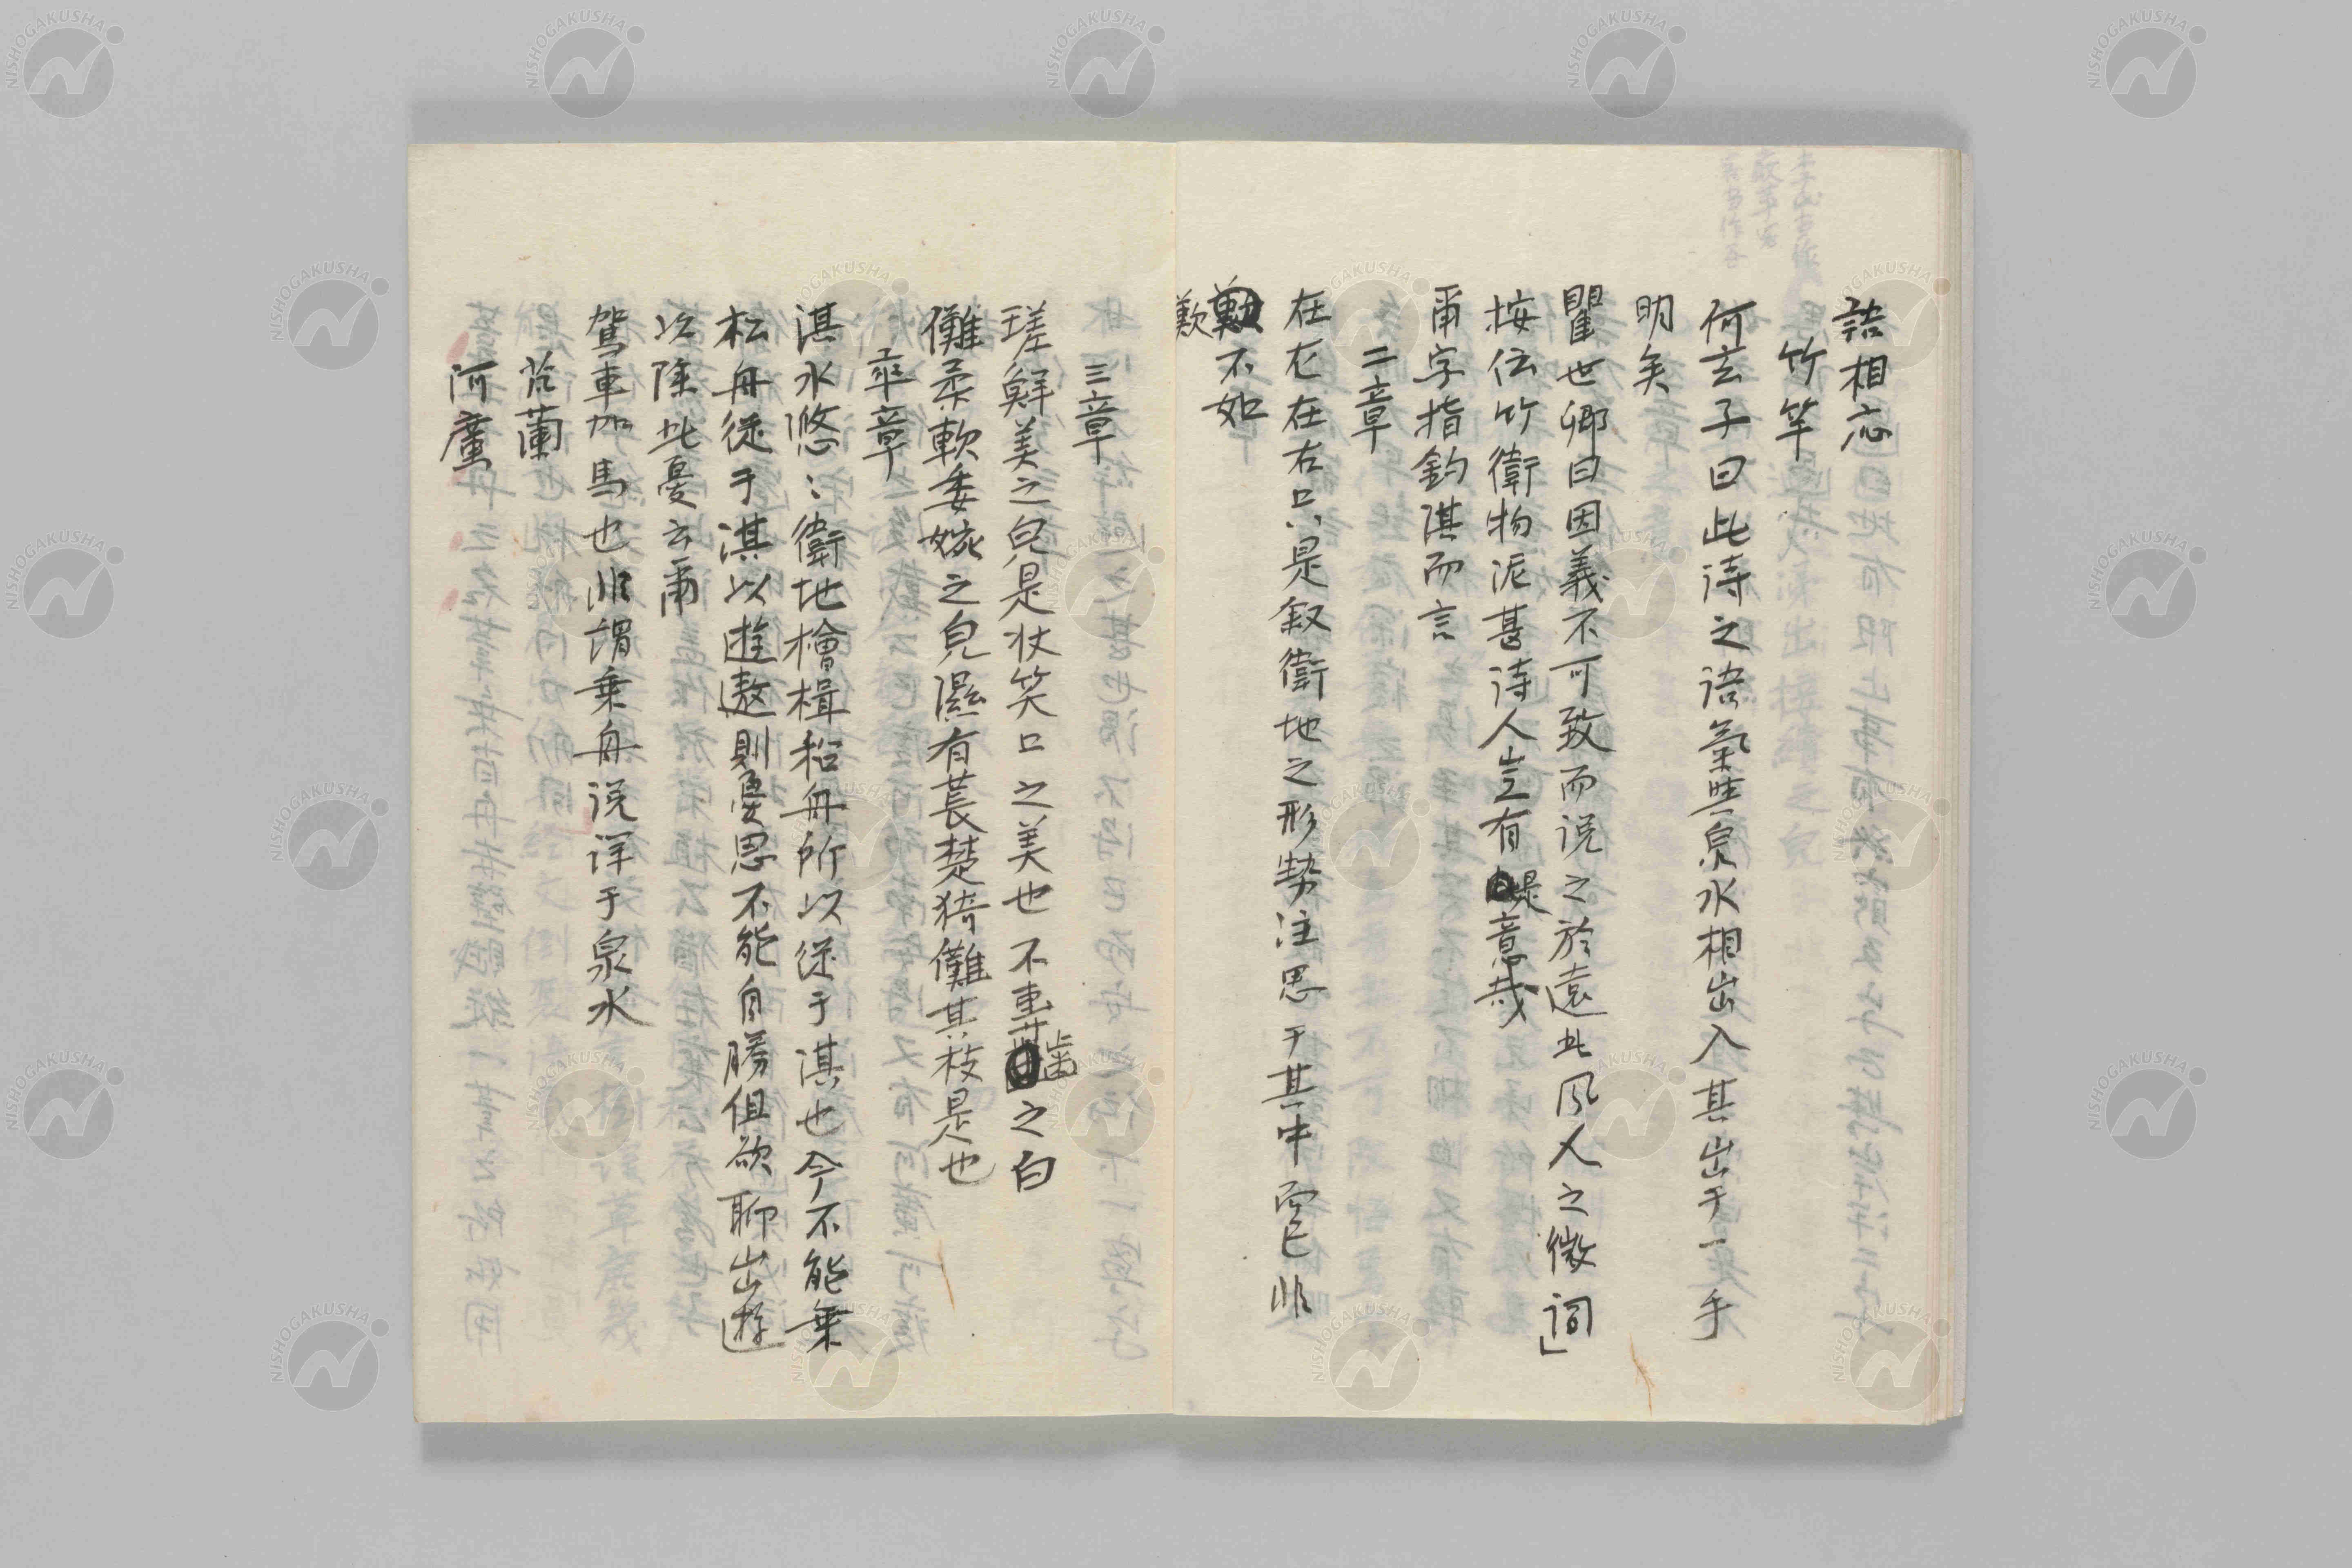 語相応
竹竿
何玄子曰此詩之語氣與泉水相出入其出于一手
明矣
瞿世卿曰因義不可致而説之於遠此風人之微詞」
按伝竹衛物泥甚詩人豈有是意哉
爾字指釣淇而言
二章
在左在右只是叙衛地之形勢注思于其中寔非
歎不如
歎
三章
瑳鮮美之皃是状笑口之美也不専齒之白
儺柔軟委婉之皃濕有萇楚猗儺其枝是也
卒章
淇水悠〻衛地檜楫松舟所以従于淇也今不能乗
松舟従于淇以遊遨則憂思不能自勝但欲聊出遊
以除此憂云爾
駕車加馬也非謂乗舟説詳于泉水
芄蘭
河廣
NISHOGAKUSHA